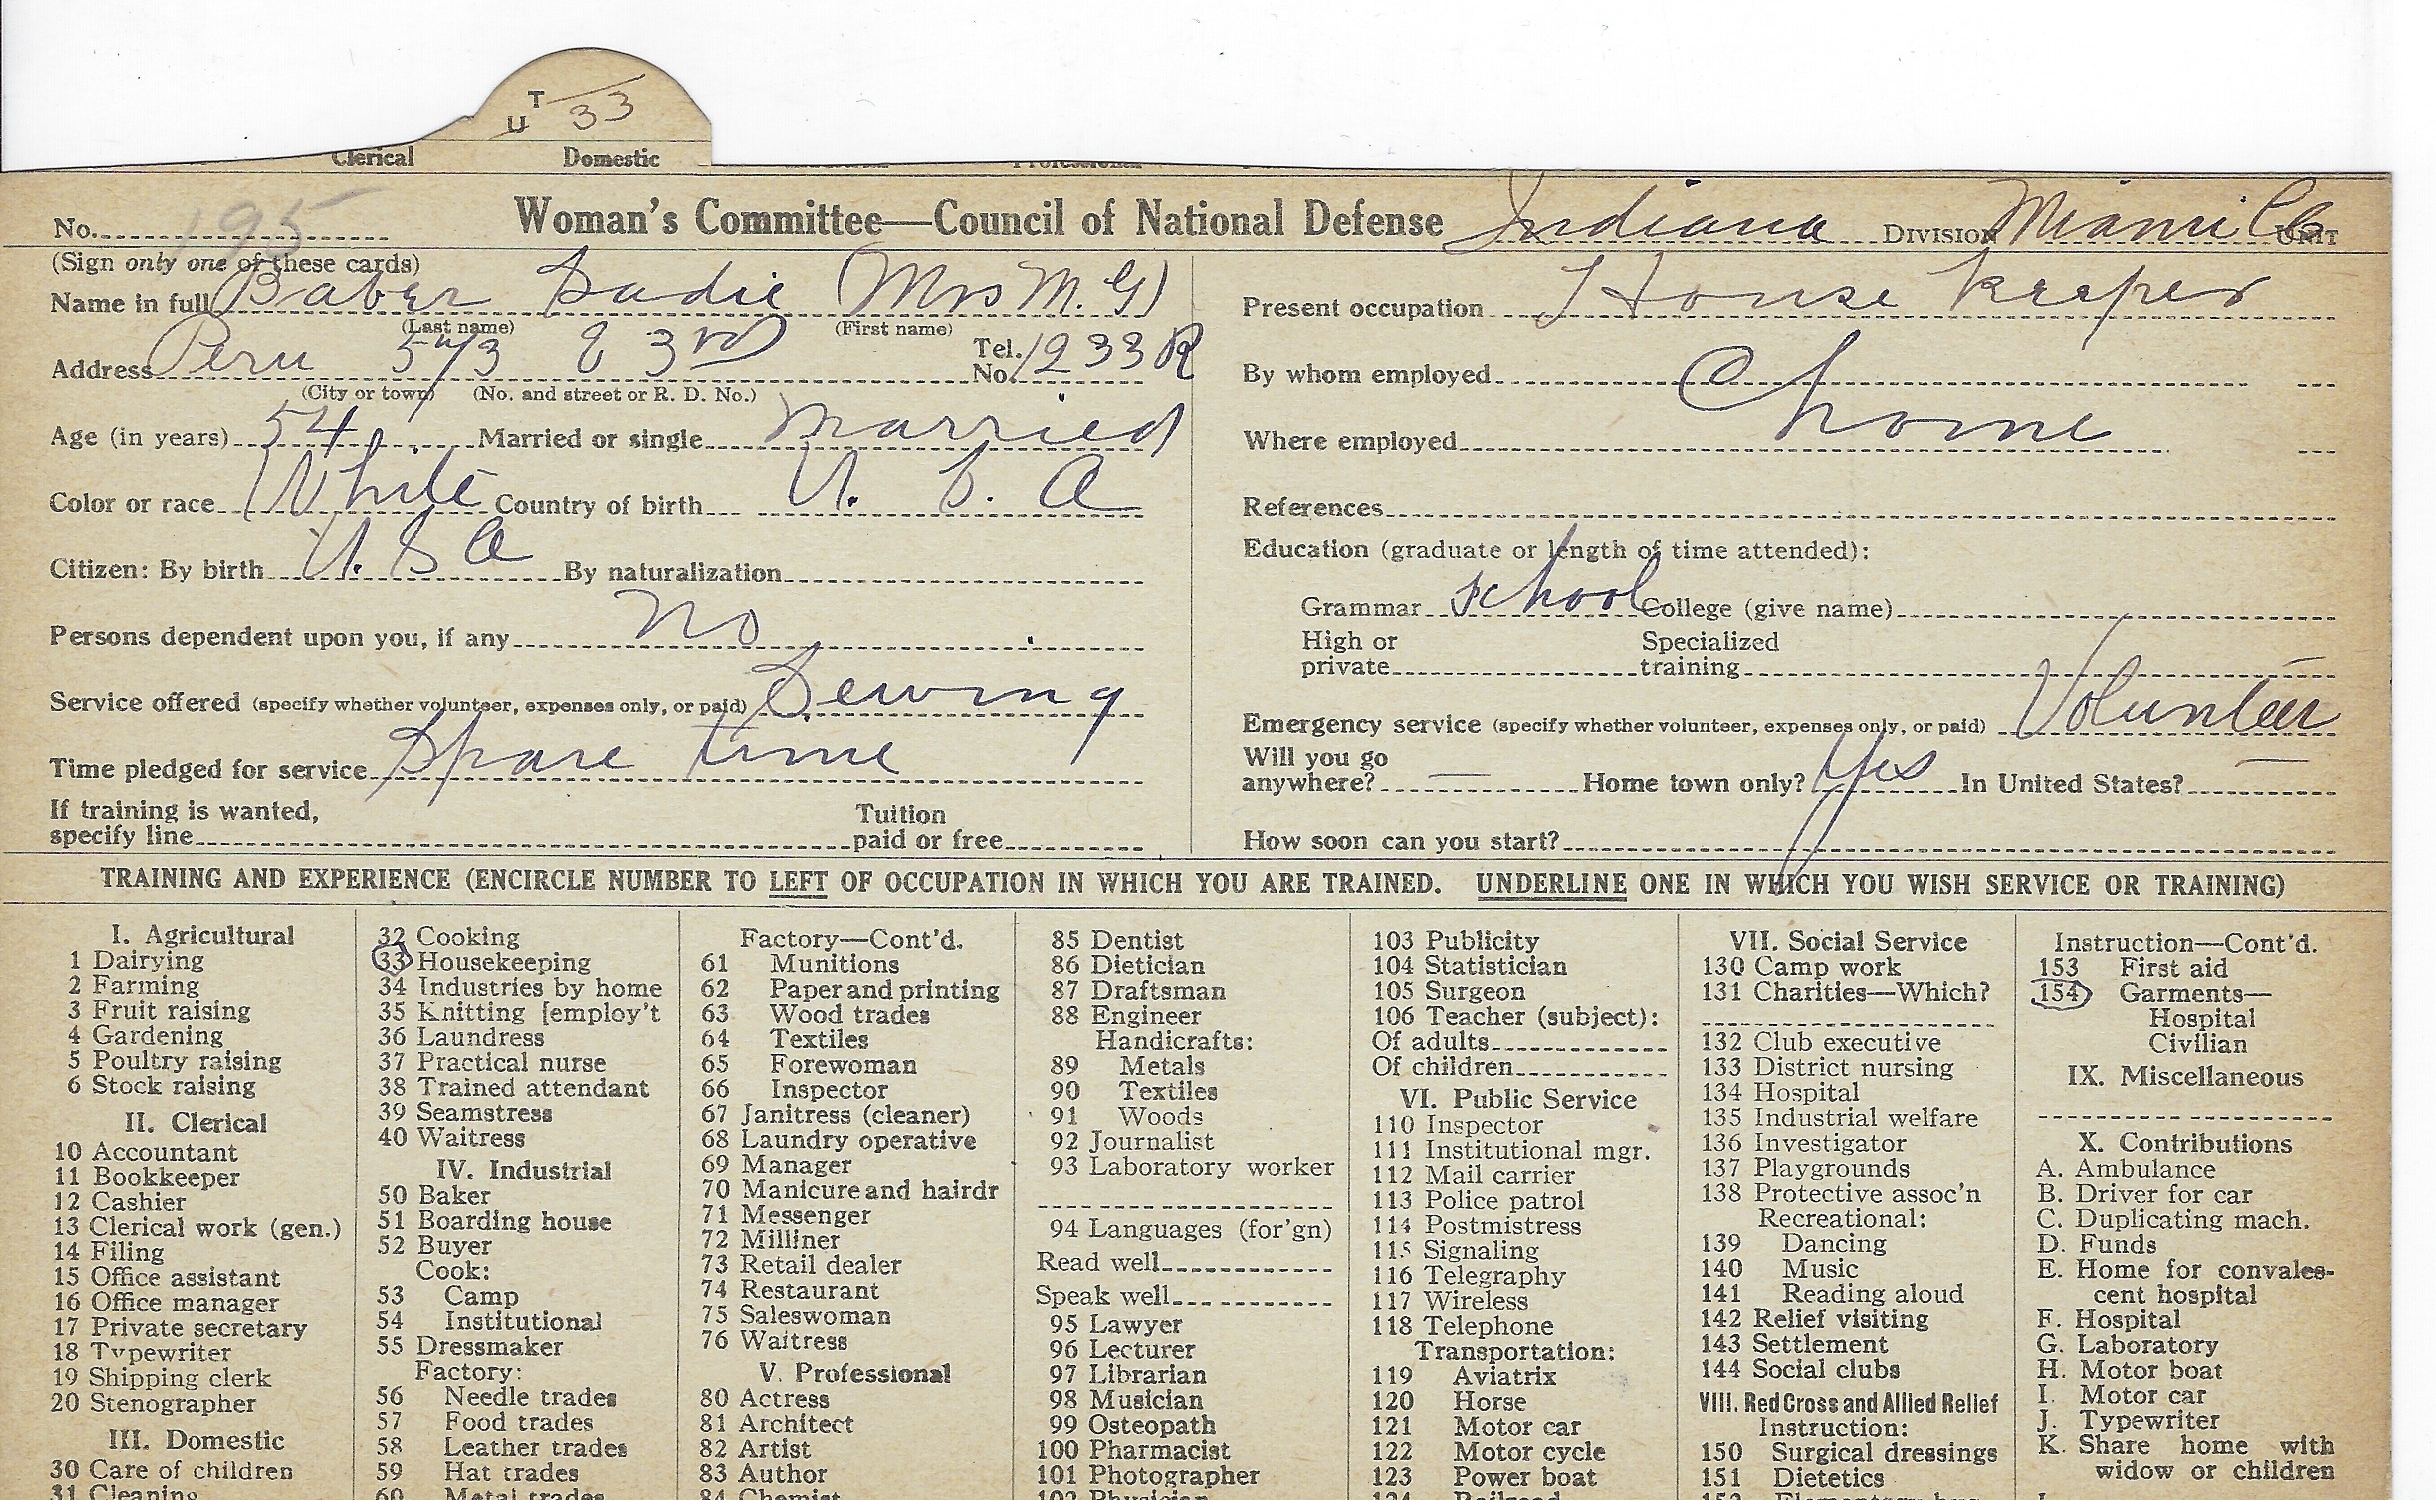 T 33
U
Clerical Domestic Professional
No. 195 Woman's Committee—Council of National Defense Indiana DIVISION Miami Co UNIT
(Sign only one of these cards)
Name in full Baber Sadie (Mrs M. G)
(Last name) (First name)
Address Peru 573 E 3rd Tel. No. 1233R
(City or town) (No. and street or R. D. No.)
Age (in years) 54 Married or single married
Color or race White Country of birth U. S. A
Citizen: By birth U. S A By naturalization
Persons dependent upon you, if any no
Service offered (specify whether volunteer, expenses only, or paid) Sewing
Time pledged for service Spare time
If training is wanted, specify line Tuition paid or free
Present occupation House keeper
By whom employed @
Where employed home
References
Education (graduate or length of time attended):
Grammar school College (give name)
High or private Specialized training
Emergency service (specify whether volunteer, expenses only, or paid) Volunteer
Will you go anywhere? — Home town only? Yes In United States? —
How soon can you start?
TRAINING AND EXPERIENCE (ENCIRCLE NUMBER TO LEFT OF OCCUPATION IN WHICH YOU ARE TRAINED. UNDERLINE ONE IN WHICH YOU WISH SERVICE OR TRAINING)
I. Agricultural
1 Dairying
2 Farming
3 Fruit raising
4 Gardening
5 Poultry raising
6 Stock raising
II. Clerical
10 Accountant
11 Bookkeeper
12 Cashier
13 Clerical work (gen.)
14 Filing
15 Office assistant
16 Office manager
17 Private secretary
18 Typewriter
19 Shipping clerk
20 Stenographer
III. Domestic
30 Care of children
31 Cleaning
32 Cooking
33 Housekeeping
34 Industries by home
35 Knitting [employ't
36 Laundress
37 Practical nurse
38 Trained attendant
39 Seamstress
40 Waitress
IV. Industrial
50 Baker
51 Boarding house
52 Buyer
Cook:
53 Camp
54 Institutional
55 Dressmaker
Factory:
56 Needle trades
57 Food trades
58 Leather trades
59 Hat trades
60 Metal trades
Factory—Cont'd.
61 Munitions
62 Paper and printing
63 Wood trades
64 Textiles
65 Forewoman
66 Inspector
67 Janitress (cleaner)
68 Laundry operative
69 Manager
70 Manicure and hairdr
71 Messenger
72 Milliner
73 Retail dealer
74 Restaurant
75 Saleswoman
76 Waitress
V. Professional
80 Actress
81 Architect
82 Artist
83 Author
84 Chemist
85 Dentist
86 Dietician
87 Draftsman
88 Engineer
Handicrafts:
89 Metals
90 Textiles
91 Woods
92 Journalist
93 Laboratory worker
94 Languages (for'gn)
Read well
Speak well
95 Lawyer
96 Lecturer
97 Librarian
98 Musician
99 Osteopath
100 Pharmacist
101 Photographer
102 Physician
103 Publicity
104 Statistician
105 Surgeon
106 Teacher (subject):
Of adults
Of children
VI. Public Service
110 Inspector
111 Institutional mgr.
112 Mail carrier
113 Police patrol
114 Postmistress
115 Signaling
116 Telegraphy
117 Wireless
118 Telephone
Transportation:
119 Aviatrix
120 Horse
121 Motor car
122 Motor cycle
123 Power boat
124 Railroad
VII. Social Service
130 Camp work
131 Charities—Which?
132 Club executive
133 District nursing
134 Hospital
135 Industrial welfare
136 Investigator
137 Playgrounds
138 Protective assoc'n
Recreational:
139 Dancing
140 Music
141 Reading aloud
142 Relief visiting
143 Settlement
144 Social clubs
VIII. Red Cross and Allied Relief
Instruction:
150 Surgical dressings
151 Dietetics
152 Elementary hyg.
Instruction—Cont'd.
153 First aid
154 Garments—
Hospital
Civilian
IX. Miscellaneous
X. Contributions
A. Ambulance
B. Driver for car
C. Duplicating mach.
D. Funds
E. Home for convales-
cent hospital
F. Hospital
G. Laboratory
H. Motor boat
I. Motor car
J. Typewriter
K. Share home with
widow or children
L.